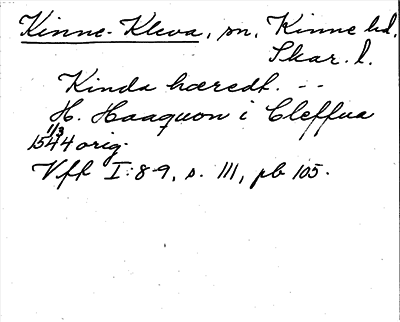 Kinne-Kleva, sn, Kinne hd.
Skar. l.
Kinda hæredt. --
H. Haaquon i Cleffua
1544 11/3 orig.
Vfk I:8-9, s. 111, pb 105.